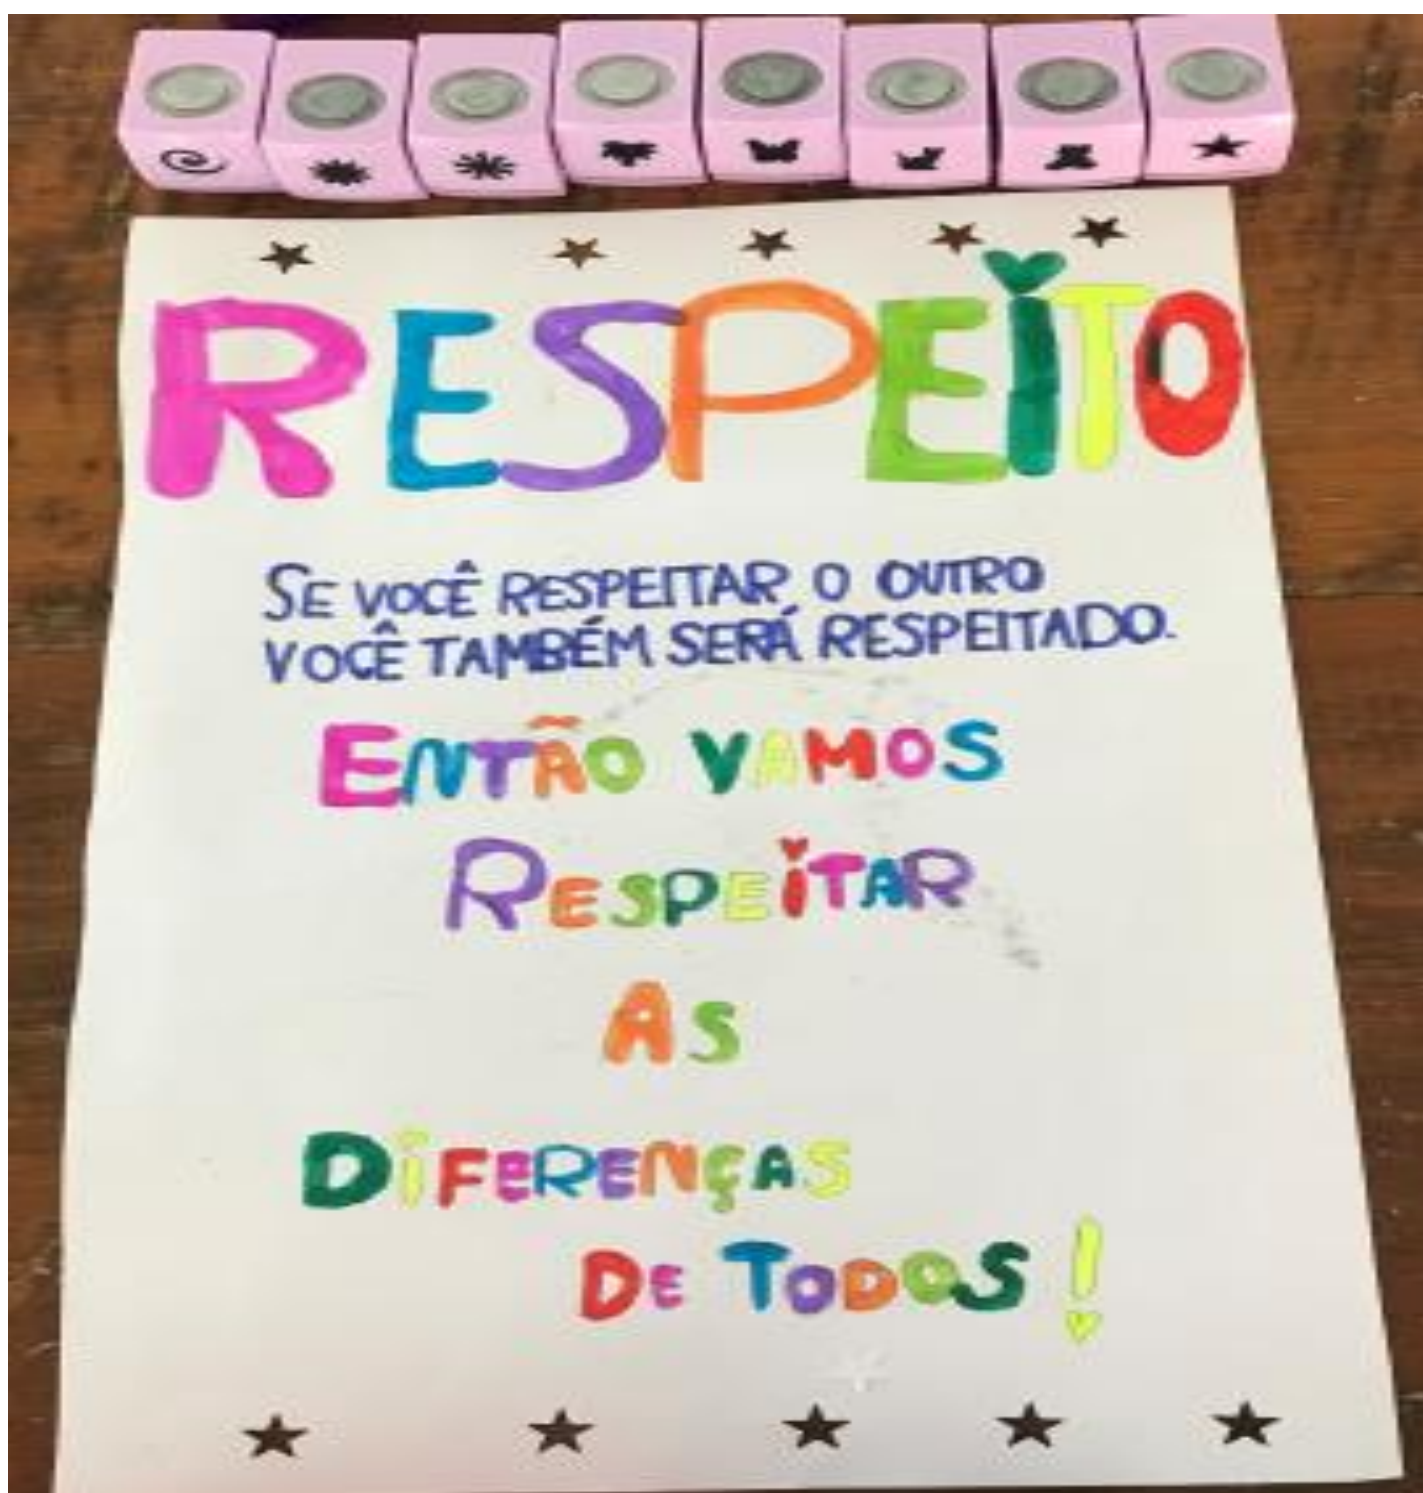 RESPEITO
SE VOCÊ RESPEITAR O OUTRO
VOCÊ TAMBÉM SERÁ RESPEITADO.
ENTÃO VAMOS
RESPEITAR
AS
DIFERENÇAS
DE TODOS!